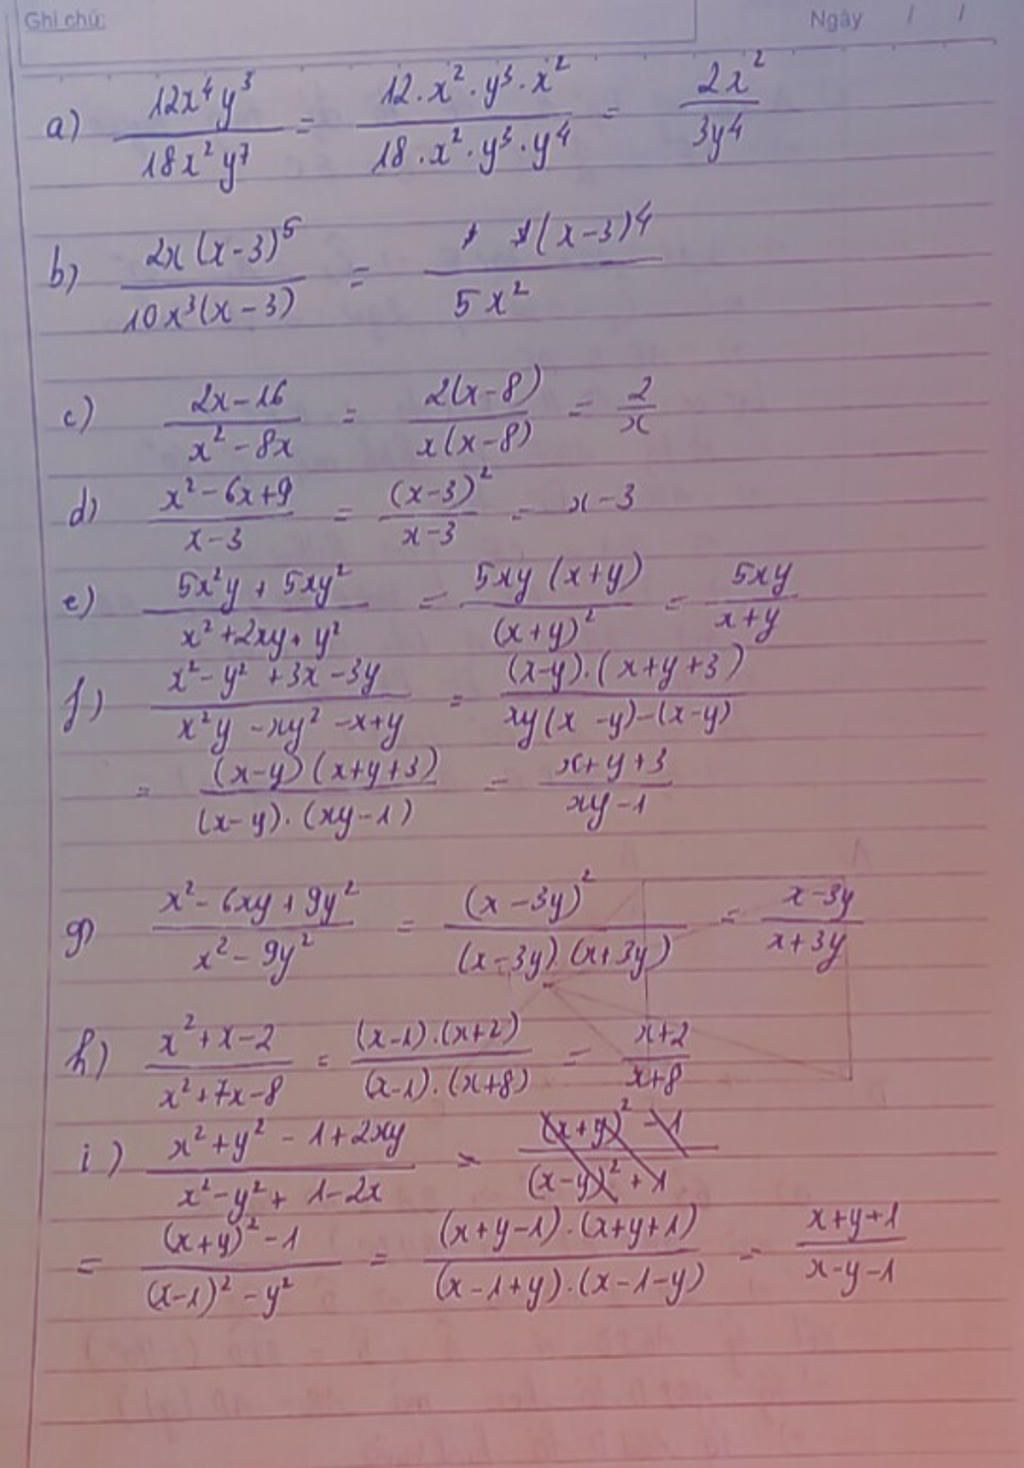 Ghi chú: Ngày / /
a) 12x⁴y³/18x²y⁷ = 12.x².y³.x²/18.x².y³.y⁴ = 2x²/3y⁴
b) 2x(x-3)⁵/10x³(x-3) = 1(x-3)⁴/5x²
c) 2x-16/x²-8x = 2(x-8)/x(x-8) = 2/x
d) x²-6x+9/x-3 = (x-3)²/x-3 = x-3
e) 5x²y+5xy²/x²+2xy+y² = 5xy(x+y)/(x+y)² = 5xy/x+y
f) x²-y²+3x-3y/x²y-xy²-x+y = (x-y).(x+y+3)/xy(x-y)-(x-y)
= (x-y)(x+y+3)/(x-y).(xy-1) = x+y+3/xy-1
g) x²-6xy+9y²/x²-9y² = (x-3y)²/(x-3y)(x+3y) = x-3y/x+3y
h) x²+x-2/x²+7x-8 = (x-1).(x+2)/(x-1).(x+8) = x+2/x+8
i) x²+y²-1+2xy/x²-y²+1-2x = (x+y)²-1/(x-y)²+1
= (x+y)²-1/(x-1)²-y² = (x+y-1).(x+y+1)/(x-1+y).(x-1-y) = x+y+1/x-y-1